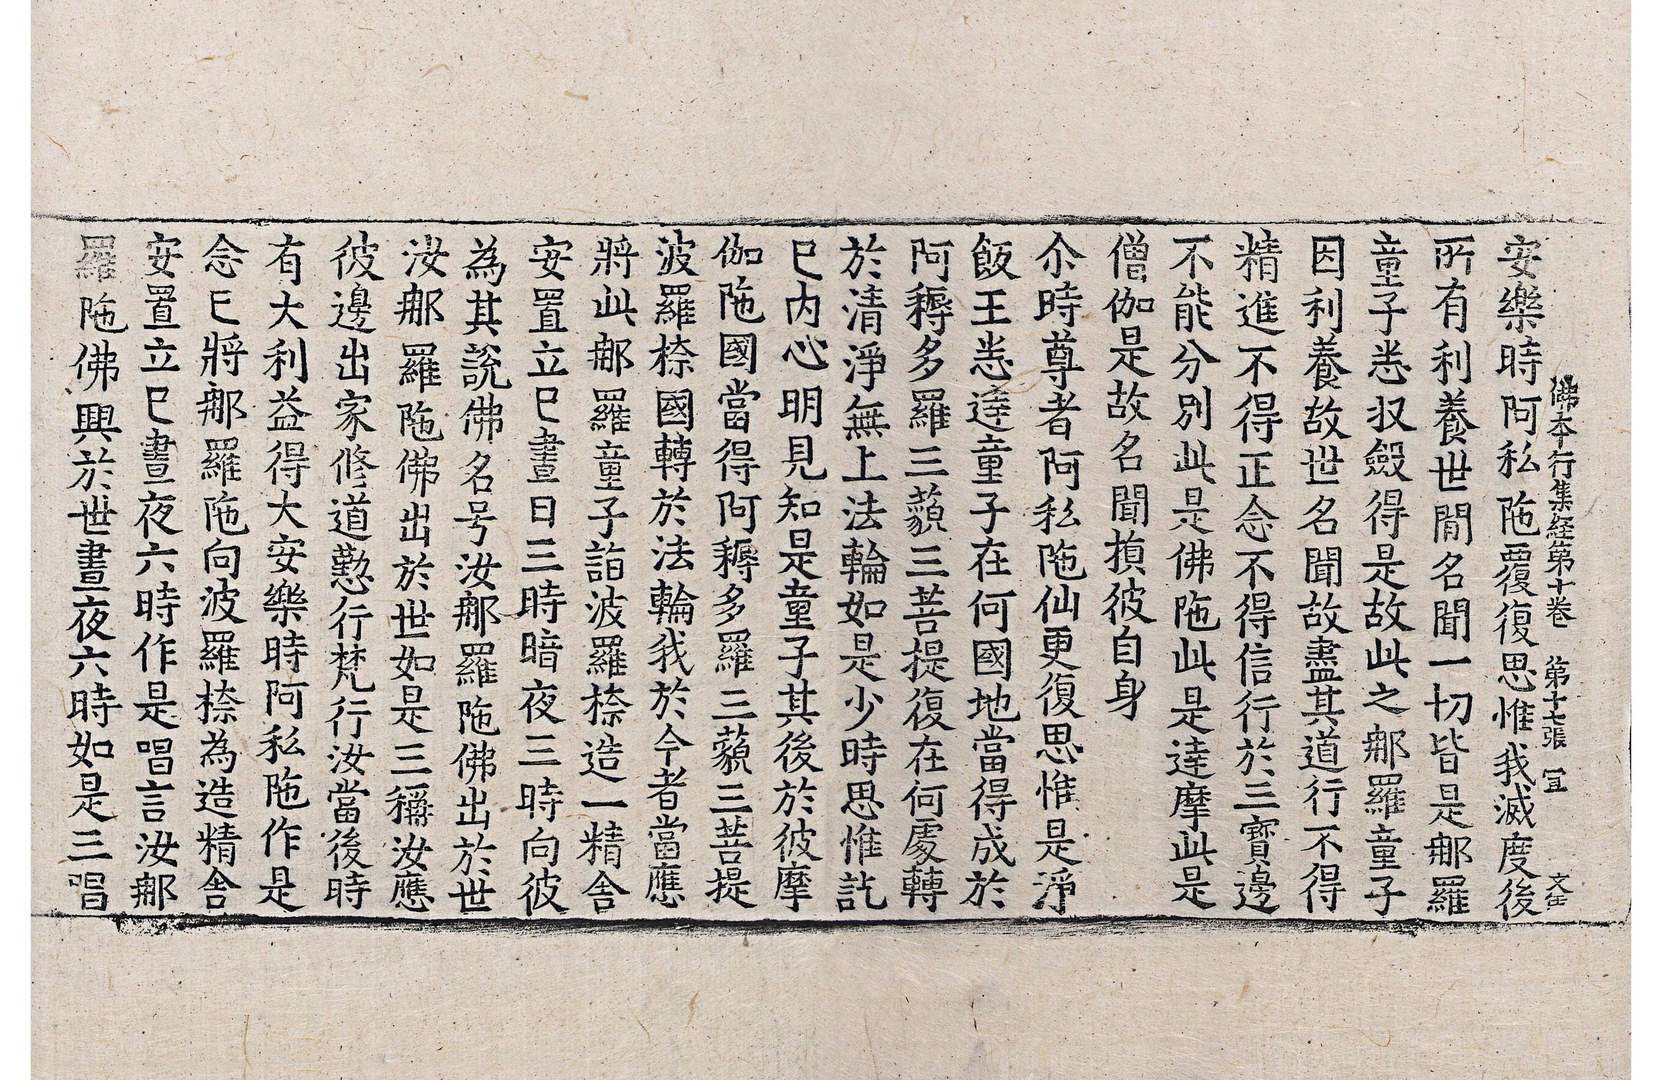 佛本行集経第十卷 第十七張 冝 文生
安樂時阿私陁覆復思惟我滅度後
所有利養世間名聞一切皆是郍羅
童子悉収斂得是故此之郍羅童子
因利養故世名聞故盡其道行不得
精進不得正念不得信行於三寶邊
不能分別此是佛陁此是達摩此是
僧伽是故名聞損彼自身
尒時尊者阿私陁仙更復思惟是淨
飯王悉達童子在何國地當得成於
阿耨多羅三藐三菩提復在何處轉
於清淨無上法輪如是少時思惟訖
已内心明見知是童子其後於彼摩
伽陁國當得阿耨多羅三藐三菩提
波羅㮈國轉於法輪我於今者當應
將此郍羅童子詣波羅㮈造一精舍
安置立已晝日三時暗夜三時向彼
為其說佛名号汝郍羅陁佛出於世
汝郍羅陁佛出於世如是三稱汝應
彼邊出家修道懃行梵行汝當後時
有大利益得大安樂時阿私陁作是
念已將郍羅陁向波羅㮈為造精舍
安置立已晝夜六時作是唱言汝郍
羅陁佛興於世晝夜六時如是三唱